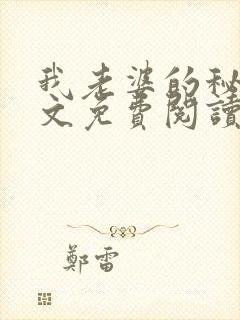 我老婆的秘
文免費閱讀
鄭雷